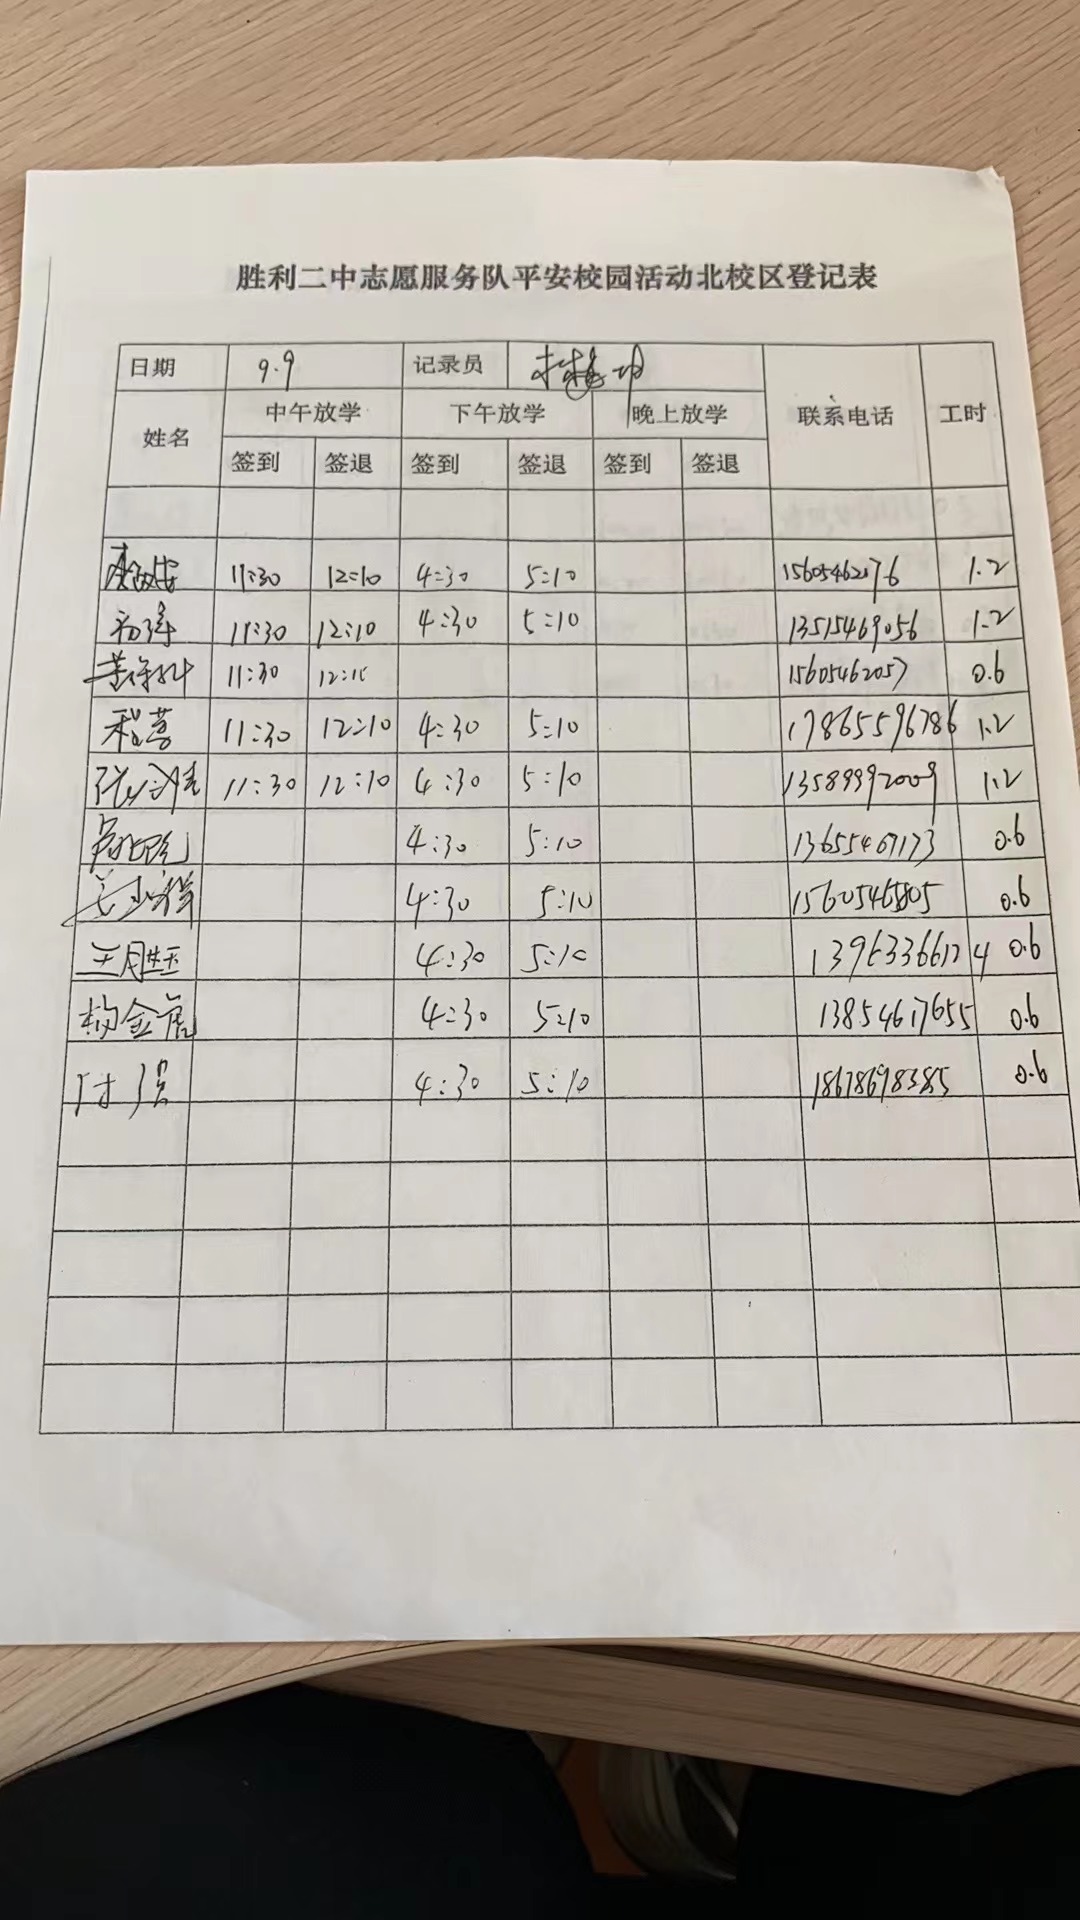 胜利二中志愿服务队平安校园活动北校区登记表
日期 9.9 记录员
姓名 中午放学 下午放学 晚上放学 联系电话 工时
签到 签退 签到 签退 签到 签退
11:30 12:10 4:30 5:10 15605462076 1.2
11:30 12:10 4:30 5:10 13515469056 1.2
11:30 12:10 15605462057 0.6
程营 11:30 12:10 4:30 5:10 17865596786 1.2
11:30 12:10 4:30 5:10 13589992009 1.2
4:30 5:10 13655467173 0.6
4:30 5:10 15605465805 0.6
王胜玉 4:30 5:10 0.6
杨金启 4:30 5:10 13854617655 0.6
付强 4:30 5:10 18678698385 0.6